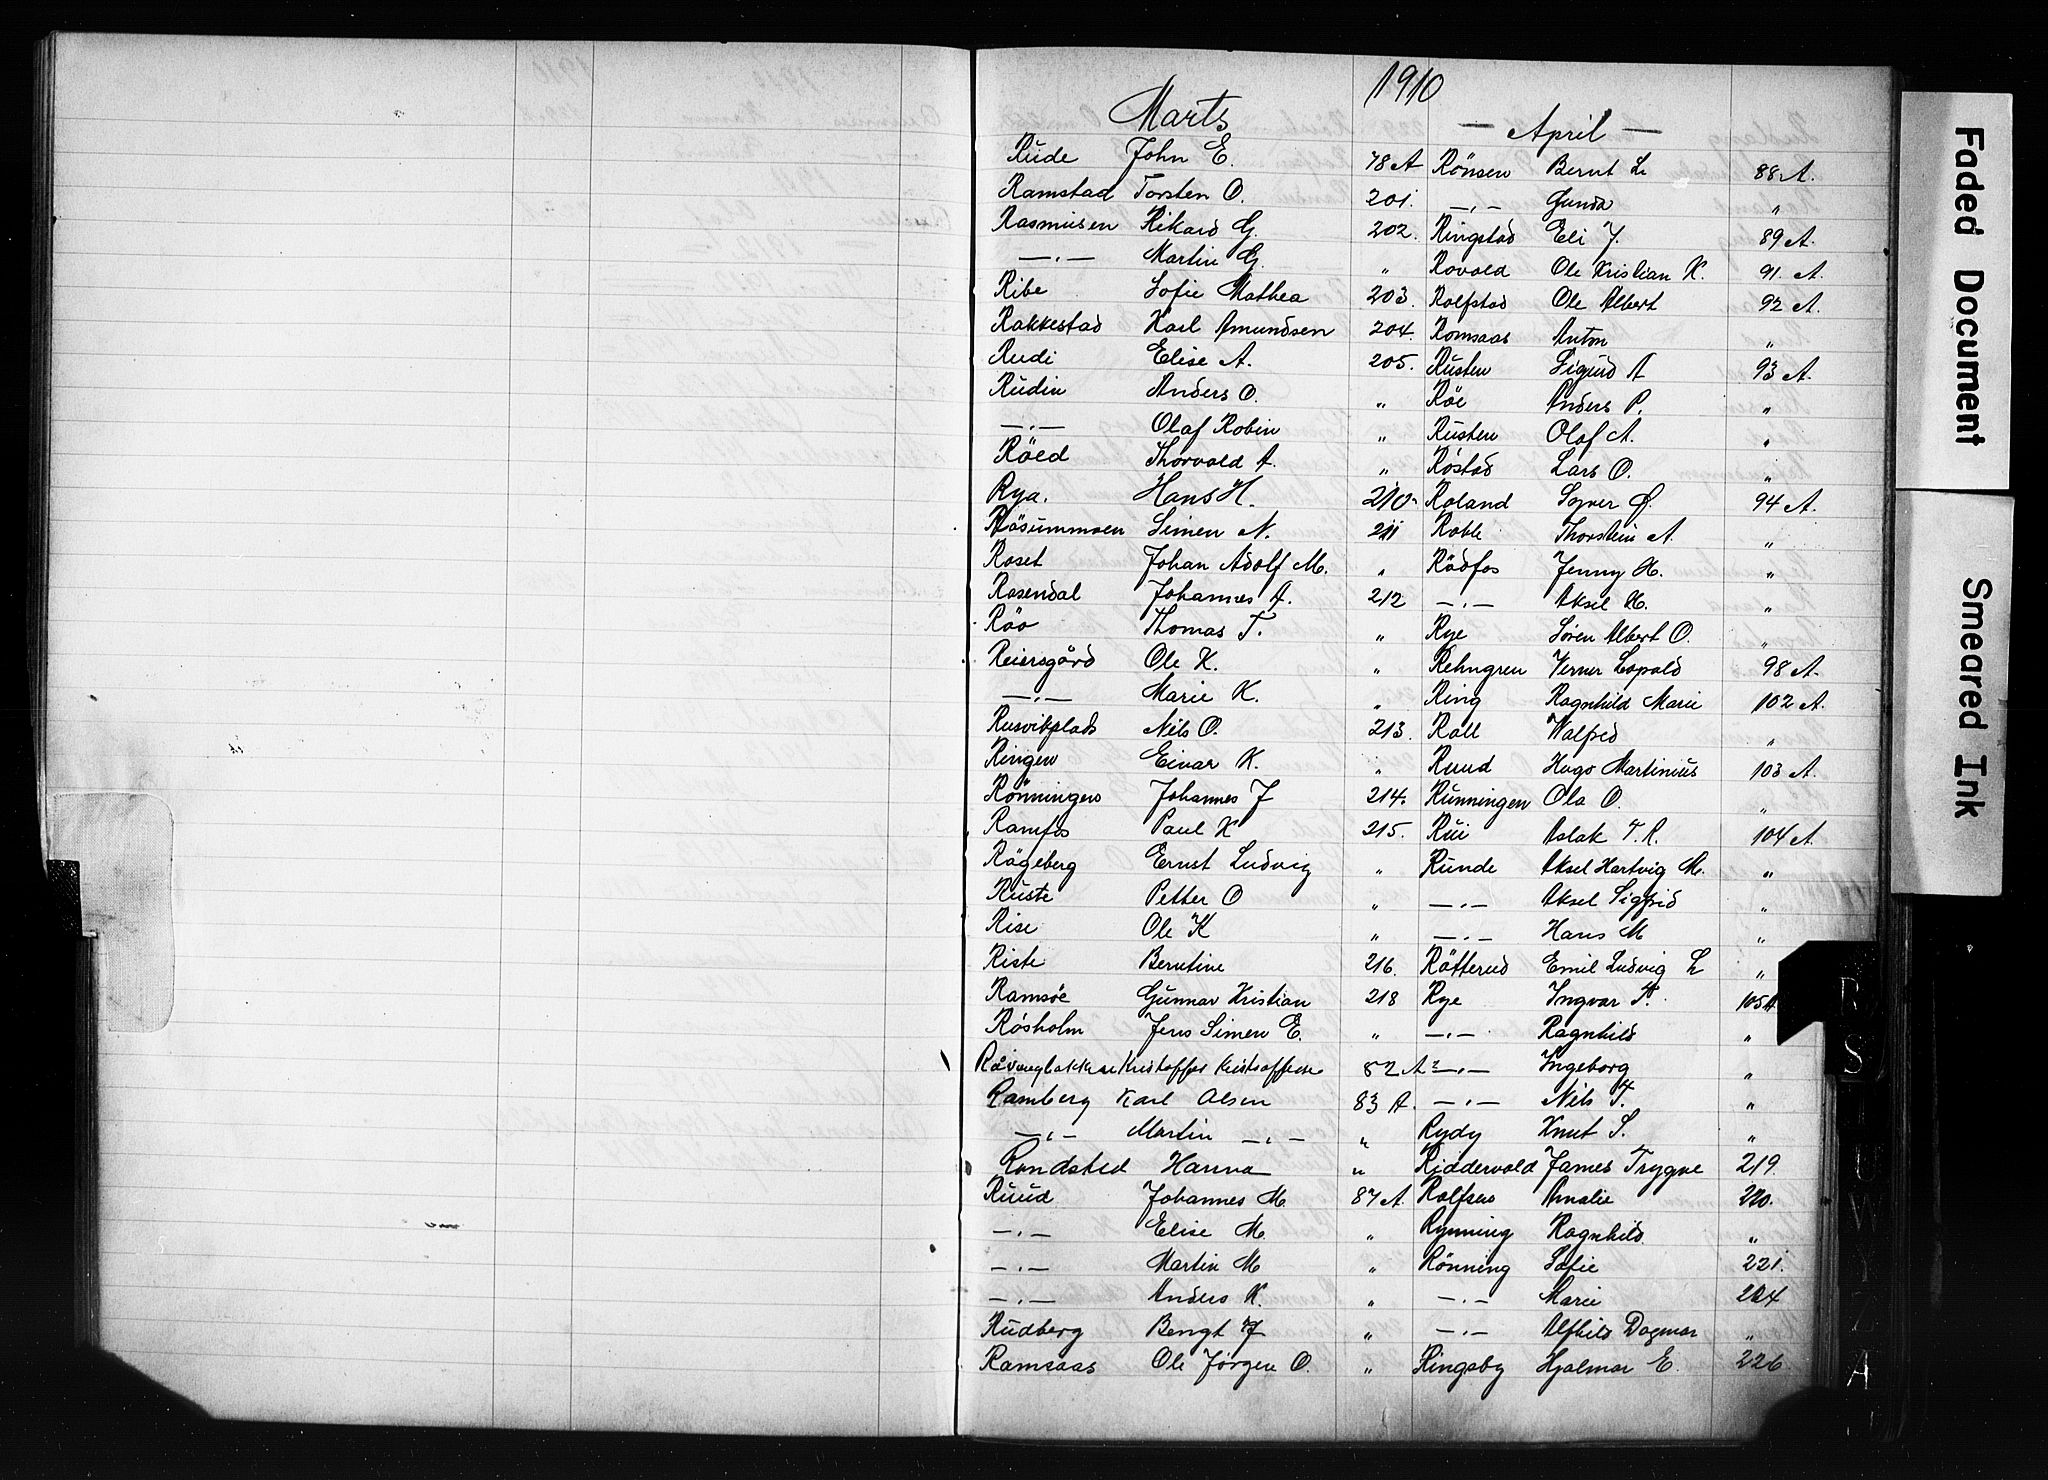 1910
Marts
Rude John E. 78 A
Ramstad Torsten O. 201.
Rasmusen Rikard G. 202.
—„— Martin G. „
Ribe Sofie Mathea 203.
Rakkestad Karl Amundsen 204.
Rudi Elise A. 205.
Rudin Anders O. „
—„— Olaf Robin „
Röed Thorvald A. „
Rya. Hans H. 210
RöSummoen Simen N. 211
Roset Johan Adolf M. „
Rosendal Johannes A. 212
Röo Thomas T. „
Reiersgård Ole K. „
—„— Marie K. „
Rusvikplads Nils O. 213.
Ringen Einar K. „
Rönningen Johannes J 214.
Ramfos Paul K 215.
Rågeberg Ernst Ludvig „
Ruste Petter O „
Rise Ole K „
Riste Berntine 216.
Ramsöe Gunnar Kristian 218
Rösholm Jens Simen E. „
Kristoffer Kristoffersen 82 A
Ramberg Karl Olsen 83 A.
—„— Martin —„— „
Rondsted Hanna „
Ruud Johannes M. 87 A.
—„— Elise M. „
—„— Martin M „
—„— Anders K. „
Rudberg Bengt J „
Ramsaas Ole Jörgen O. „
— April —
Rönsen Bernt L 88 A.
—„— Gunda „
Ringstad Eli J. 89 A.
Rovold Ole Kristian K. 91. A.
Rolfstad Ole Albert 92 A.
Romsaas Anton „
Rusten Sigurd A 93 A.
Röe Anders P. „
Rusten Olaf A. „
Röstad Lars O. „
Roland Syver O. 94 A.
Roble Thorstein A. „
Rödfos Jenny H. „
—„— Aksel H. „
Rye Sören Albert O. „
Rehngren Verner Lopold 98 A.
Ring Ragnhild Marie 102 A.
Roll Walfred „
Ruud Hugo Martinius 103 A.
Runningen Ola O. „
Rui Aslak T. R. 104 A.
Runde Aksel Hartvig M. „
—„— Aksel Sigfrid „
—„— Hans M „
Råtterud Emil Ludvig L „
Rye Ingvar T. 105 A
—„— Ragnhild „
—„— Ingeborg „
—„— Nils T. „
Rydy Knut S. „
Riddervold James Trygve 219.
Rolfsen Amalie 220.
Rynning Ragnhild „
Rönning Sofie 221.
—„— Marie 224
—„— Alfhild Dagmar „
Ringsby Hjalmar E. 226.
Faded Document
Smeared Ink
R
S
T
U
V
Y
Z
A